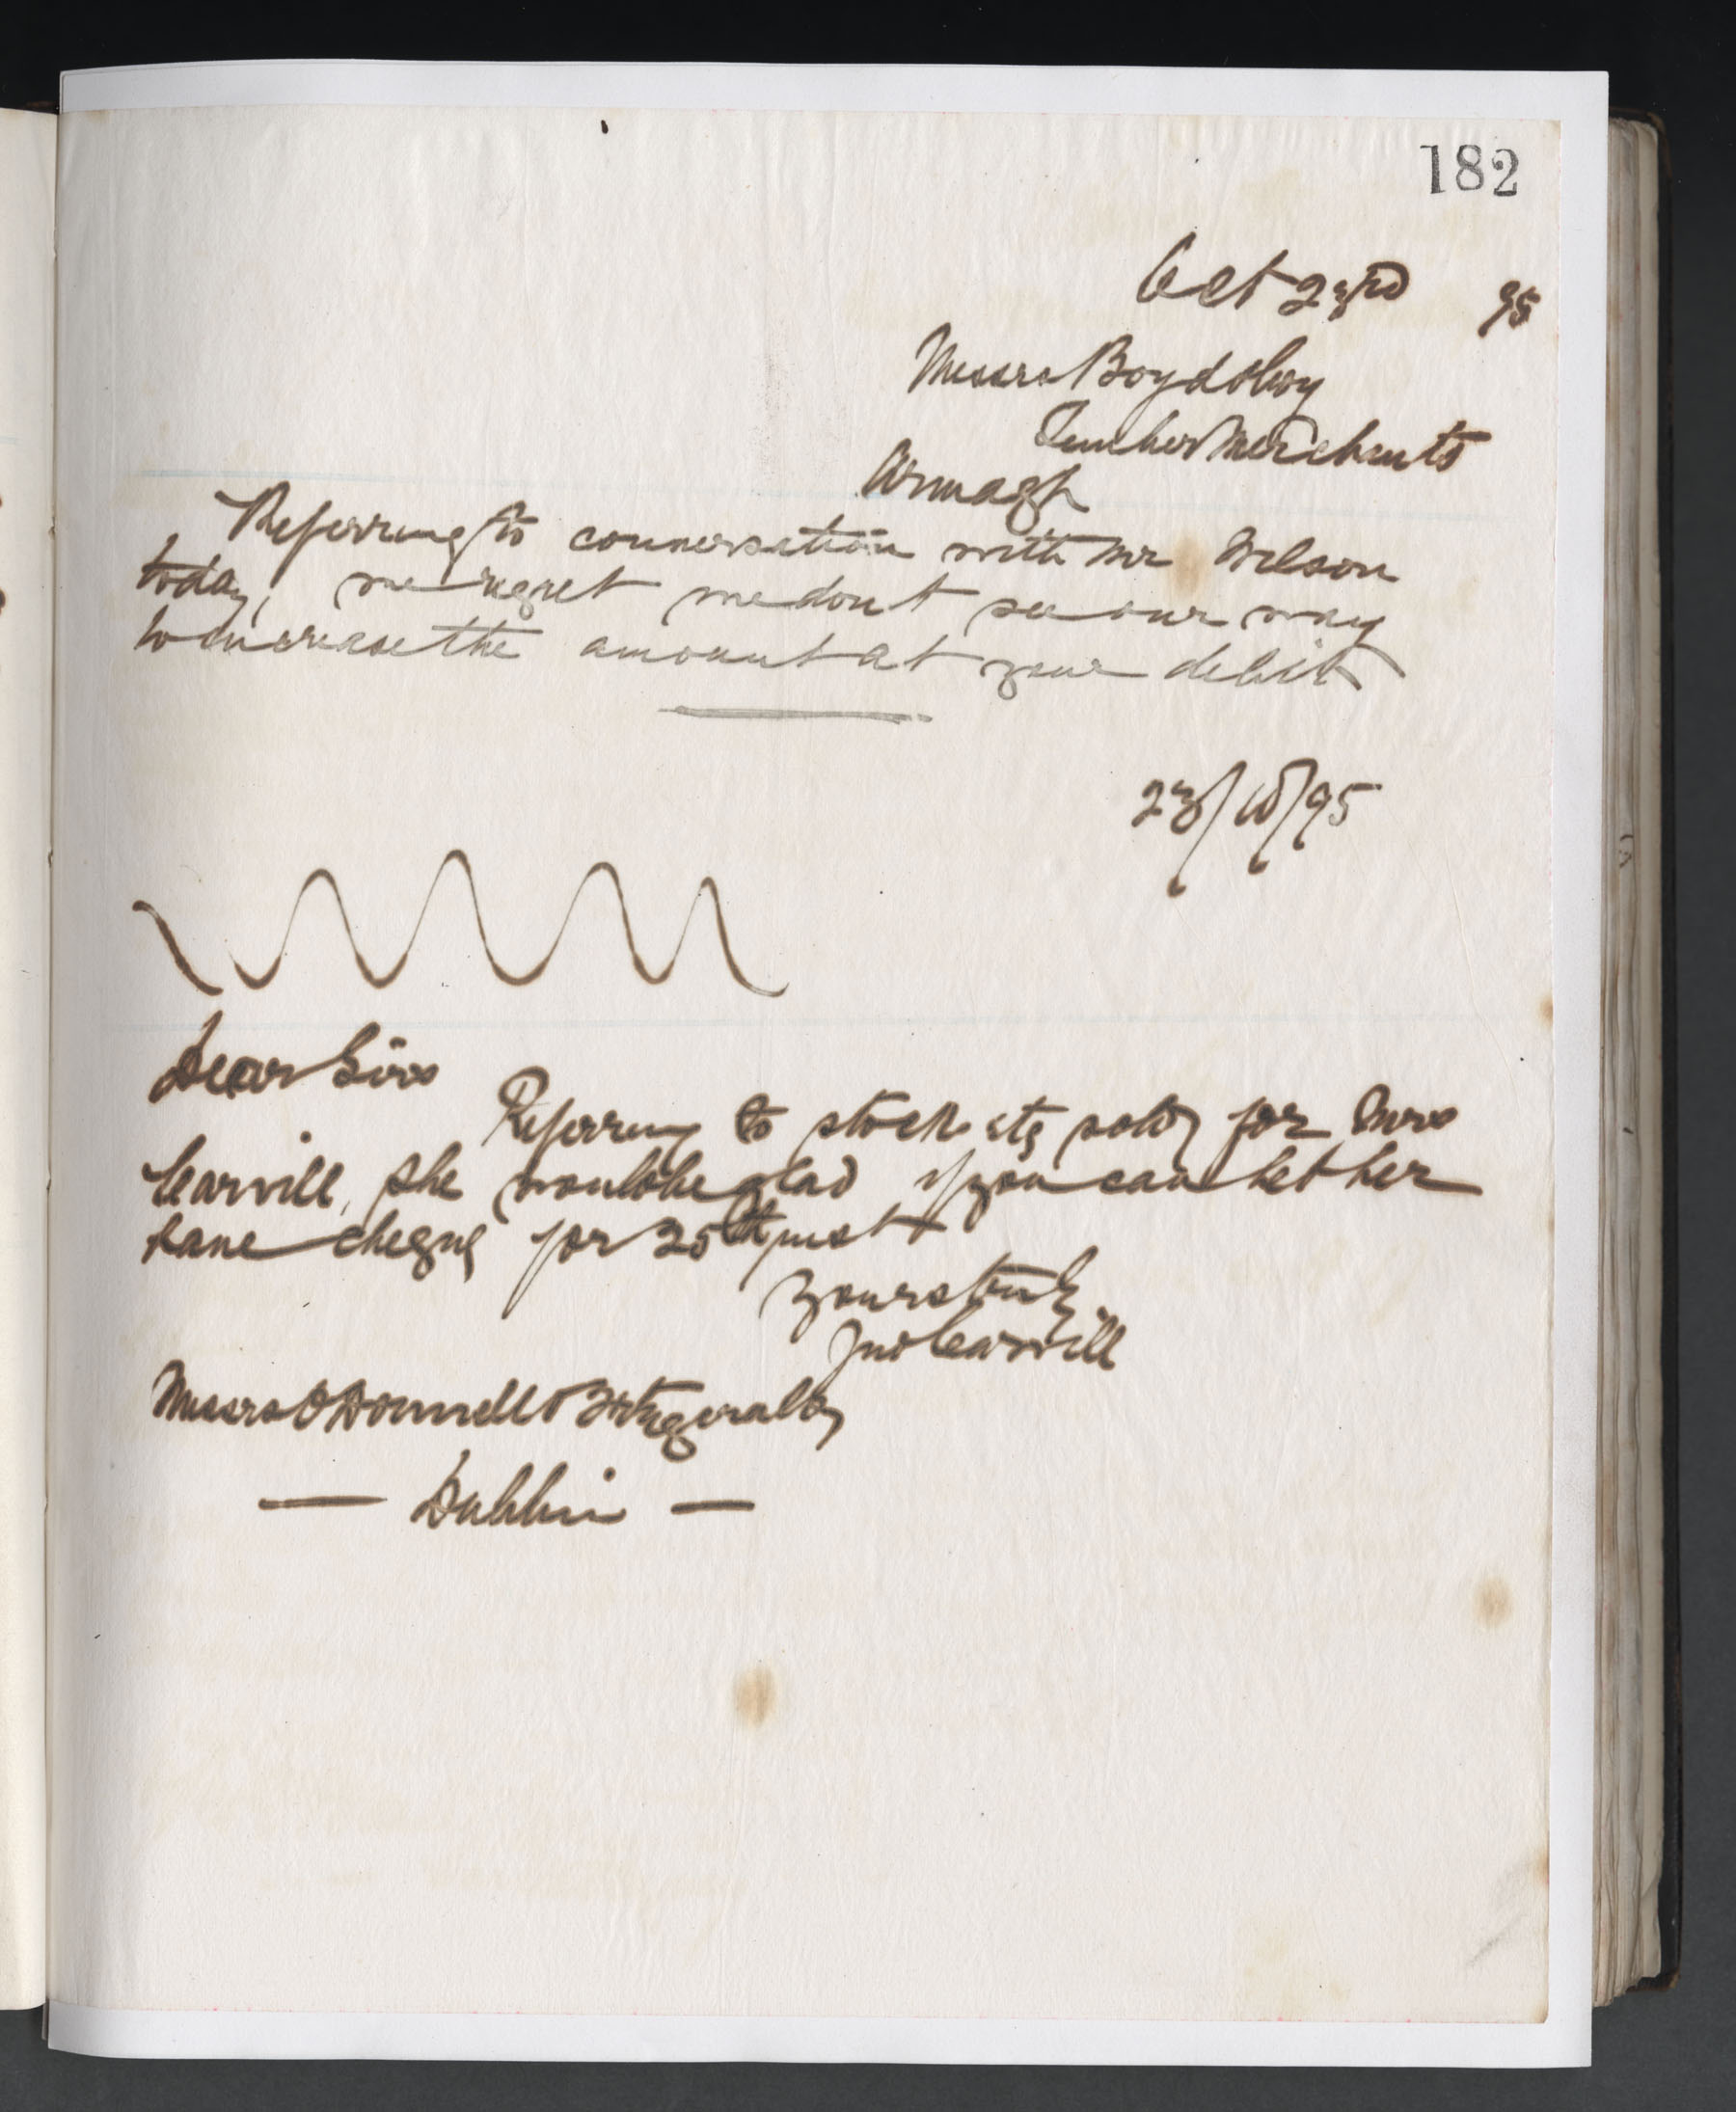 182
Oct 23rd 95
Messrs Boyd & Coy
Timber Merchants
Armagh
Referring to conversation with Mr Wilson
today, we regret we dont see our way
to increase the amount at your debit
23/10/95
Dear Sirs
Referring to stock etc sold for Mrs
Carvill, she would be glad if you can let her
have cheque for 25th inst
Yours truly
Jno Carvill
Messrs O'Donnell & Fitzgerald
— Dublin —